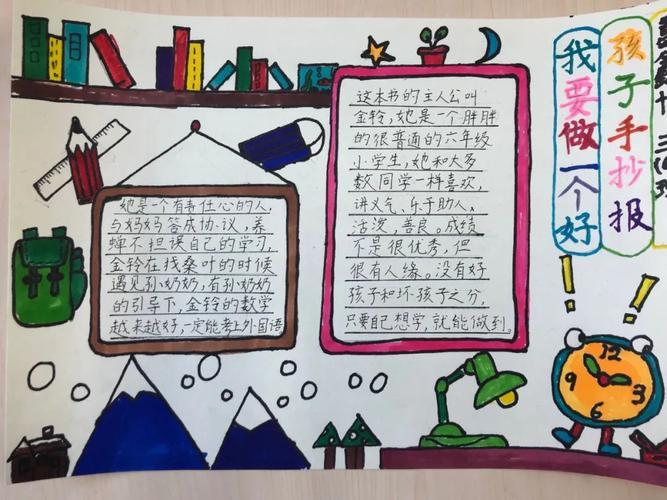 我要做一个好
孩子手抄报
她是一个有责任心的人,
与妈妈答成协议,养
蝉不担误自己的学习,
金铃在找桑叶的时候
遇见孙奶奶,有孙奶奶
的引导下,金铃的数学
越来越好,一定能考上外国语
这本书的主人公叫
金铃,她是一个胖胖
的很普通的六年级
小学生,她和大多
数同学一样喜欢,
讲义气、乐于助人、
活泼,善良。成绩
不是很优秀,但
很有人缘。没有好
孩子和坏孩子之分,
只要自己想学,就能做到。
12
9
3
6